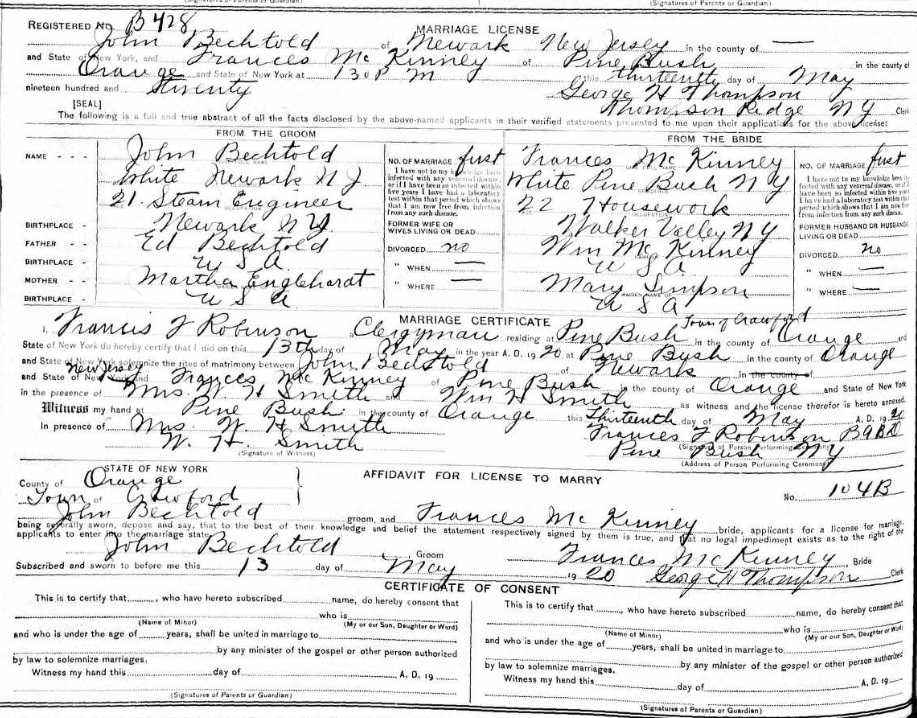 (Signatures of Parents or Guardian) (Signatures of Parents or Guardian)
REGISTERED NO. B428 MARRIAGE LICENSE
John Bechtold of Newark New Jersey in the county of —
and State of New York, and Frances Mc Kinney of Pine Bush in the county of
Orange and State of New York at 130 P M this thirteenth day of May
nineteen hundred and Twenty George H Thompson
[SEAL] Thompson Ridge NY Clerk
The following is a full and true abstract of all the facts disclosed by the above-named applicants in their verified statements presented to me upon their applications for the above license:
FROM THE GROOM
NAME - - - John Bechtold
White Newark N J
21 Steam Engineer
BIRTHPLACE - Newark N.Y.
FATHER - - Ed Bechtold
BIRTHPLACE - U S A
MOTHER - - Martha Englehardt
BIRTHPLACE - U S A
NO. OF MARRIAGE first
I have not to my knowledge been
infected with any venereal disease,
or if I have been so infected within
five years I have had a laboratory
test within that period which shows
that I am now free from infection
from any such disease.
FORMER WIFE OR
WIVES LIVING OR DEAD
DIVORCED no
" WHEN —
" WHERE —
FROM THE BRIDE
Frances Mc Kinney
White Pine Bush N Y
22 Housework
Walker Valley N Y
Wm Mc Kinney
U S A
Mary Simpson
U S A
NO. OF MARRIAGE first
I have not to my knowledge been
infected with any venereal disease,
or if I have been so infected within
five years I have had a laboratory
test within that period which shows
that I am now free from infection
from any such disease.
FORMER HUSBAND OR HUSBANDS
LIVING OR DEAD
DIVORCED no
" WHEN —
" WHERE —
MARRIAGE CERTIFICATE
I, Francis J Robinson Clergyman residing at Pine Bush Town of Crawford in the county of Orange and
State of New York do hereby certify that I did on this 13th day of May in the year A. D. 1920 at Pine Bush in the county of Orange
and State of New York solemnize the rites of matrimony between John Bechtold of Newark in the county of
New Jersey
and State of New York and Frances Mc Kinney of Pine Bush in the county of Orange and State of New York
in the presence of Mrs. W H Smith and Wm H Smith as witness and the license therefor is hereto annexed.
Witness my hand at Pine Bush in the county of Orange this Thirteenth day of May A. D. 1920
In presence of Mrs. W H Smith Frances J Robinson B A B D
W. H. Smith (Signature of Person Performing Ceremony)
(Signature of Witness) Pine Bush NY
(Address of Person Performing Ceremony)
STATE OF NEW YORK
County of Orange AFFIDAVIT FOR LICENSE TO MARRY
Town of Crawford No. 104B
John Bechtold groom, and Frances Mc Kinney bride, applicants for a license for marriage,
being severally sworn, depose and say, that to the best of their knowledge and belief the statement respectively signed by them is true, and that no legal impediment exists as to the right of the
applicants to enter into the marriage state.
John Bechtold Groom Frances Mc Kinney Bride
Subscribed and sworn to before me this 13 day of May 1920 George H Thompson Clerk
CERTIFICATE OF CONSENT
This is to certify that , who have hereto subscribed name, do hereby consent that
who is
(Name of Minor) (My or our Son, Daughter or Ward)
and who is under the age of years, shall be united in marriage to
by any minister of the gospel or other person authorized
by law to solemnize marriages.
Witness my hand this day of A. D. 19
(Signatures of Parents or Guardian)
This is to certify that , who have hereto subscribed name, do hereby consent that
who is
(Name of Minor) (My or our Son, Daughter or Ward)
and who is under the age of years, shall be united in marriage to
by any minister of the gospel or other person authorized
by law to solemnize marriages.
Witness my hand this day of A. D. 19
(Signatures of Parents or Guardian)